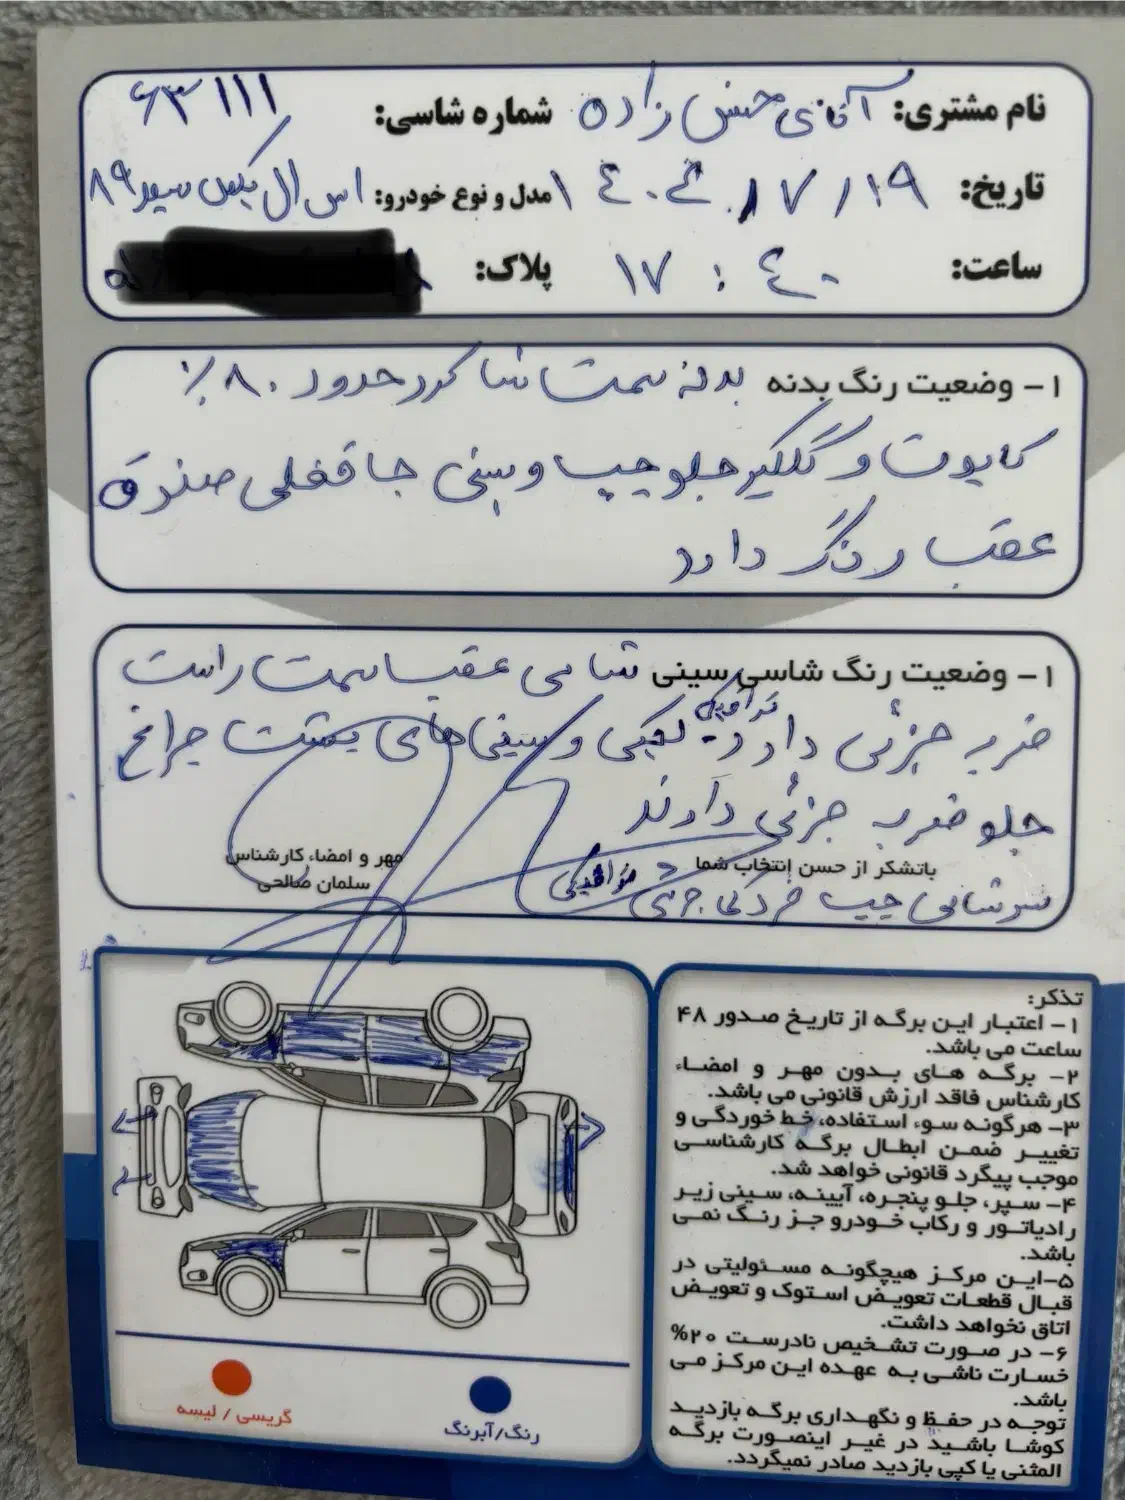 نام مشتری: آقای حسن زاده شماره شاسی: ۶۳۱۱۱
تاریخ: ۱۴۰۴/۷/۱۹ مدل و نوع خودرو: اس ال یکس سفید ۸۹
ساعت: ۱۷:۴۰ پلاک:
۱- وضعیت رنگ بدنه بدنه سمت شاگرد حدود ۸۰٪
کاپوت و گلگیر جلو چپ و سینی جا قفلی صندوق
عقب رنگ دارد
۱- وضعیت رنگ شاسی سینی شاسی عقب سمت راست
ضرب جزئی دارد و سینی‌های پشت چراغ
جلو ضرب جزئی دارند
باتشکر از حسن انتخاب شما
مهر و امضاء کارشناس
سلمان صالحی
سرشاسی چپ خوردگی جزئی
تذکر:
۱- اعتبار این برگه از تاریخ صدور ۴۸
ساعت می باشد.
۲- برگه های بدون مهر و امضاء
کارشناس فاقد ارزش قانونی می باشد.
۳- هرگونه سوء استفاده، خط خوردگی و
تغییر ضمن ابطال برگه کارشناسی
موجب پیگرد قانونی خواهد شد.
۴- سپر، جلو پنجره، آیینه، سینی زیر
رادیاتور و رکاب خودرو جز رنگ نمی
باشد.
۵-این مرکز هیچگونه مسئولیتی در
قبال قطعات تعویض استوک و تعویض
اتاق نخواهد داشت.
۶- در صورت تشخیص نادرست ۲۰%
خسارت ناشی به عهده این مرکز می
باشد.
توجه در حفظ و نگهداری برگه بازدید
کوشا باشید در غیر اینصورت برگه
المثنی یا کپی بازدید صادر نمیگردد.
گریسی / لیسه
رنگ/آبرنگ